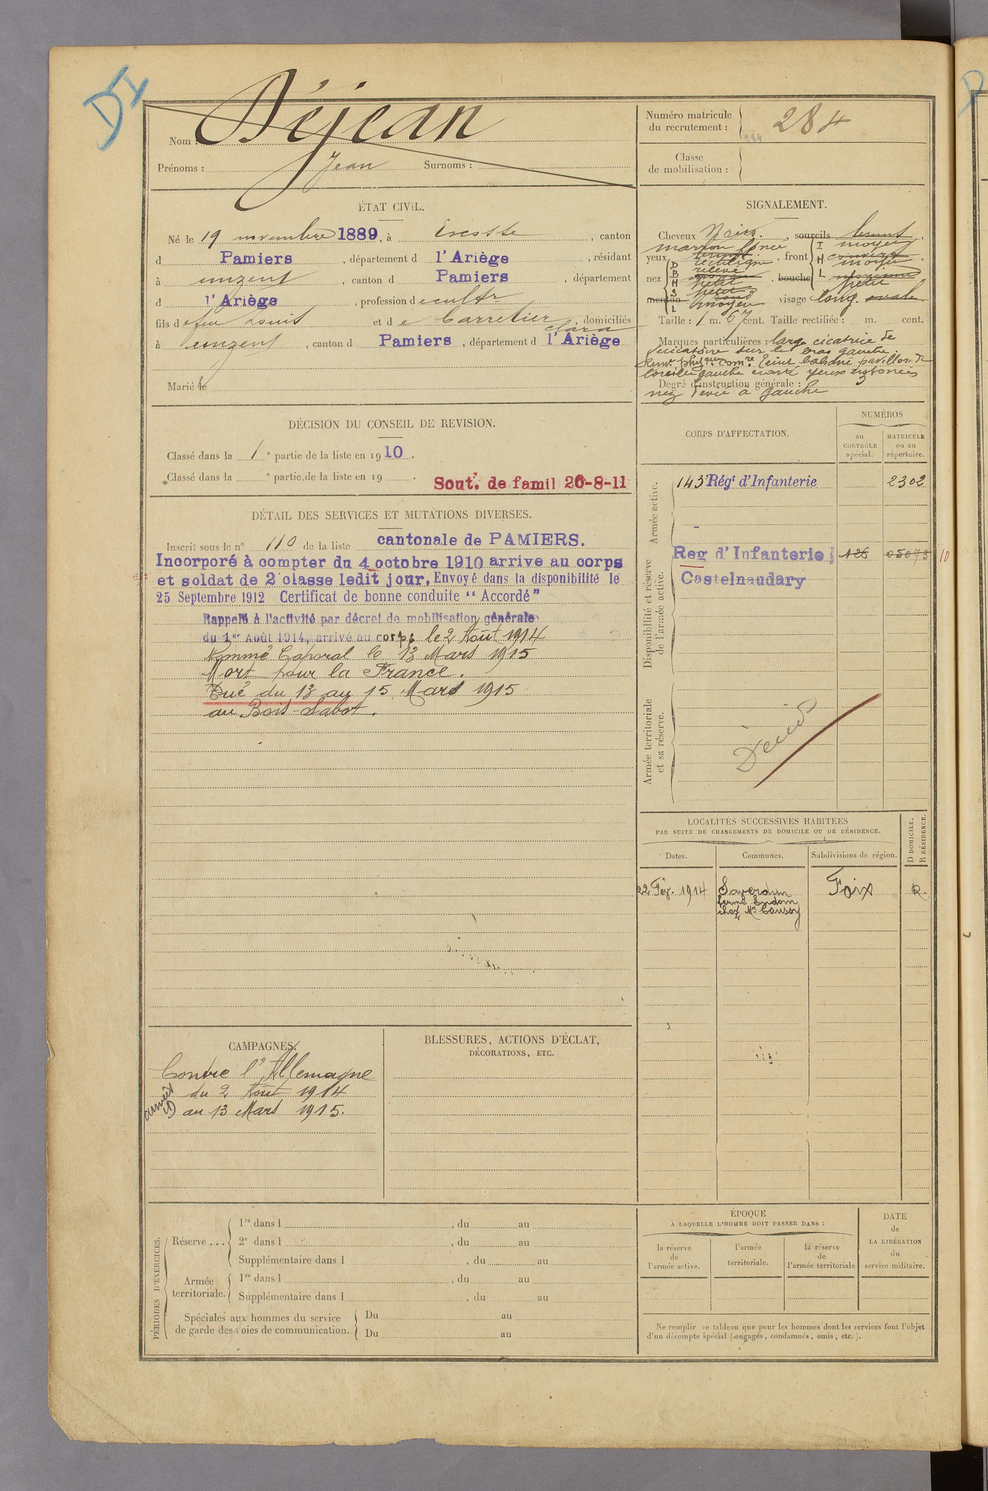 DI
Nom : Déjean
Prénoms : Jean Surnoms :
Numéro matricule
du recrutement : 284
284
Classe
de mobilisation :
ÉTAT CIVIL.
Né le 19 novembre 1889, à , canton
d Pamiers , département d l'Ariège , résidant
à unzent , canton d Pamiers , département
d l'Ariège , profession de cultr
fils de feu Louis et de Carretier Clara , domiciliés
à unzent , canton d Pamiers , département d l'Ariège
Marié le
SIGNALEMENT.
Cheveux Noirs , sourcils brunt
marron foncé
yeux , front moyen
rectiligne
moyen
nez relevé , bouche
petit
petit
menton moyen visage long. ovale.
Taille : 1 m. 67 cent. Taille rectifiée : m. cent.
Marques particulières : large cicatrice de
vésicatoire sur le bras gauche.
Degré d'instruction générale :
nez dévié à gauche
DÉCISION DU CONSEIL DE REVISION.
Classé dans la 1e partie de la liste en 1910.
Classé dans la e partie de la liste en 19 .
Sout. de famil 20-8-11
DÉTAIL DES SERVICES ET MUTATIONS DIVERSES.
Inscrit sous le n° 110 de la liste cantonale de PAMIERS.
Incorporé à compter du 4 octobre 1910 arrive au corps
et soldat de 2e classe ledit jour. Envoyé dans la disponibilité le
25 Septembre 1912 Certificat de bonne conduite “ Accordé ”
Rappelé à l'activité par décret de mobilisation générale
du 1er Août 1914, arrivé au corps le 2 Août 1914
Nommé Caporal le 13 Mars 1915
Mort pour la France.
Tué du 13 au 15 Mars 1915
au Bois-Sabot.
CORPS D'AFFECTATION.
NUMÉROS
au
CONTRÔLE
spécial.
MATRICULE
ou au
répertoire.
Armée active.
143e Régt d'Infanterie 2302
Disponibilité et réserve
de l'armée active.
Reg d'Infanterie 126 05073 10
Castelnaudary
Armée territoriale
et sa réserve.
Décédé
LOCALITÉS SUCCESSIVES HABITÉES
PAR SUITE DE CHANGEMENTS DE DOMICILE OU DE RÉSIDENCE.
D DOMICILE.
R RÉSIDENCE.
Dates. Communes. Subdivisions de région.
22 Fév. 1914 Saverdun Foix R.
CAMPAGNES.
Contre l'Allemagne
du 2 Août 1914
au 13 Mars 1915.
BLESSURES, ACTIONS D'ÉCLAT,
DÉCORATIONS, ETC.
PÉRIODES D'EXERCICES.
Réserve ...
1re dans l , du au
2e dans l , du au
Supplémentaire dans l , du au
Armée
territoriale.
1re dans l , du au
Supplémentaire dans l , du au
Spéciales aux hommes du service
de garde des voies de communication.
Du au
Du au
ÉPOQUE
À LAQUELLE L'HOMME DOIT PASSER DANS :
la réserve
de
l'armée active.
l'armée
territoriale.
la réserve
de
l'armée territoriale
DATE
de
LA LIBÉRATION
du
service militaire.
Ne remplir ce tableau que pour les hommes dont les services font l'objet
d'un décompte spécial (engagés, condamnés, omis, etc.).